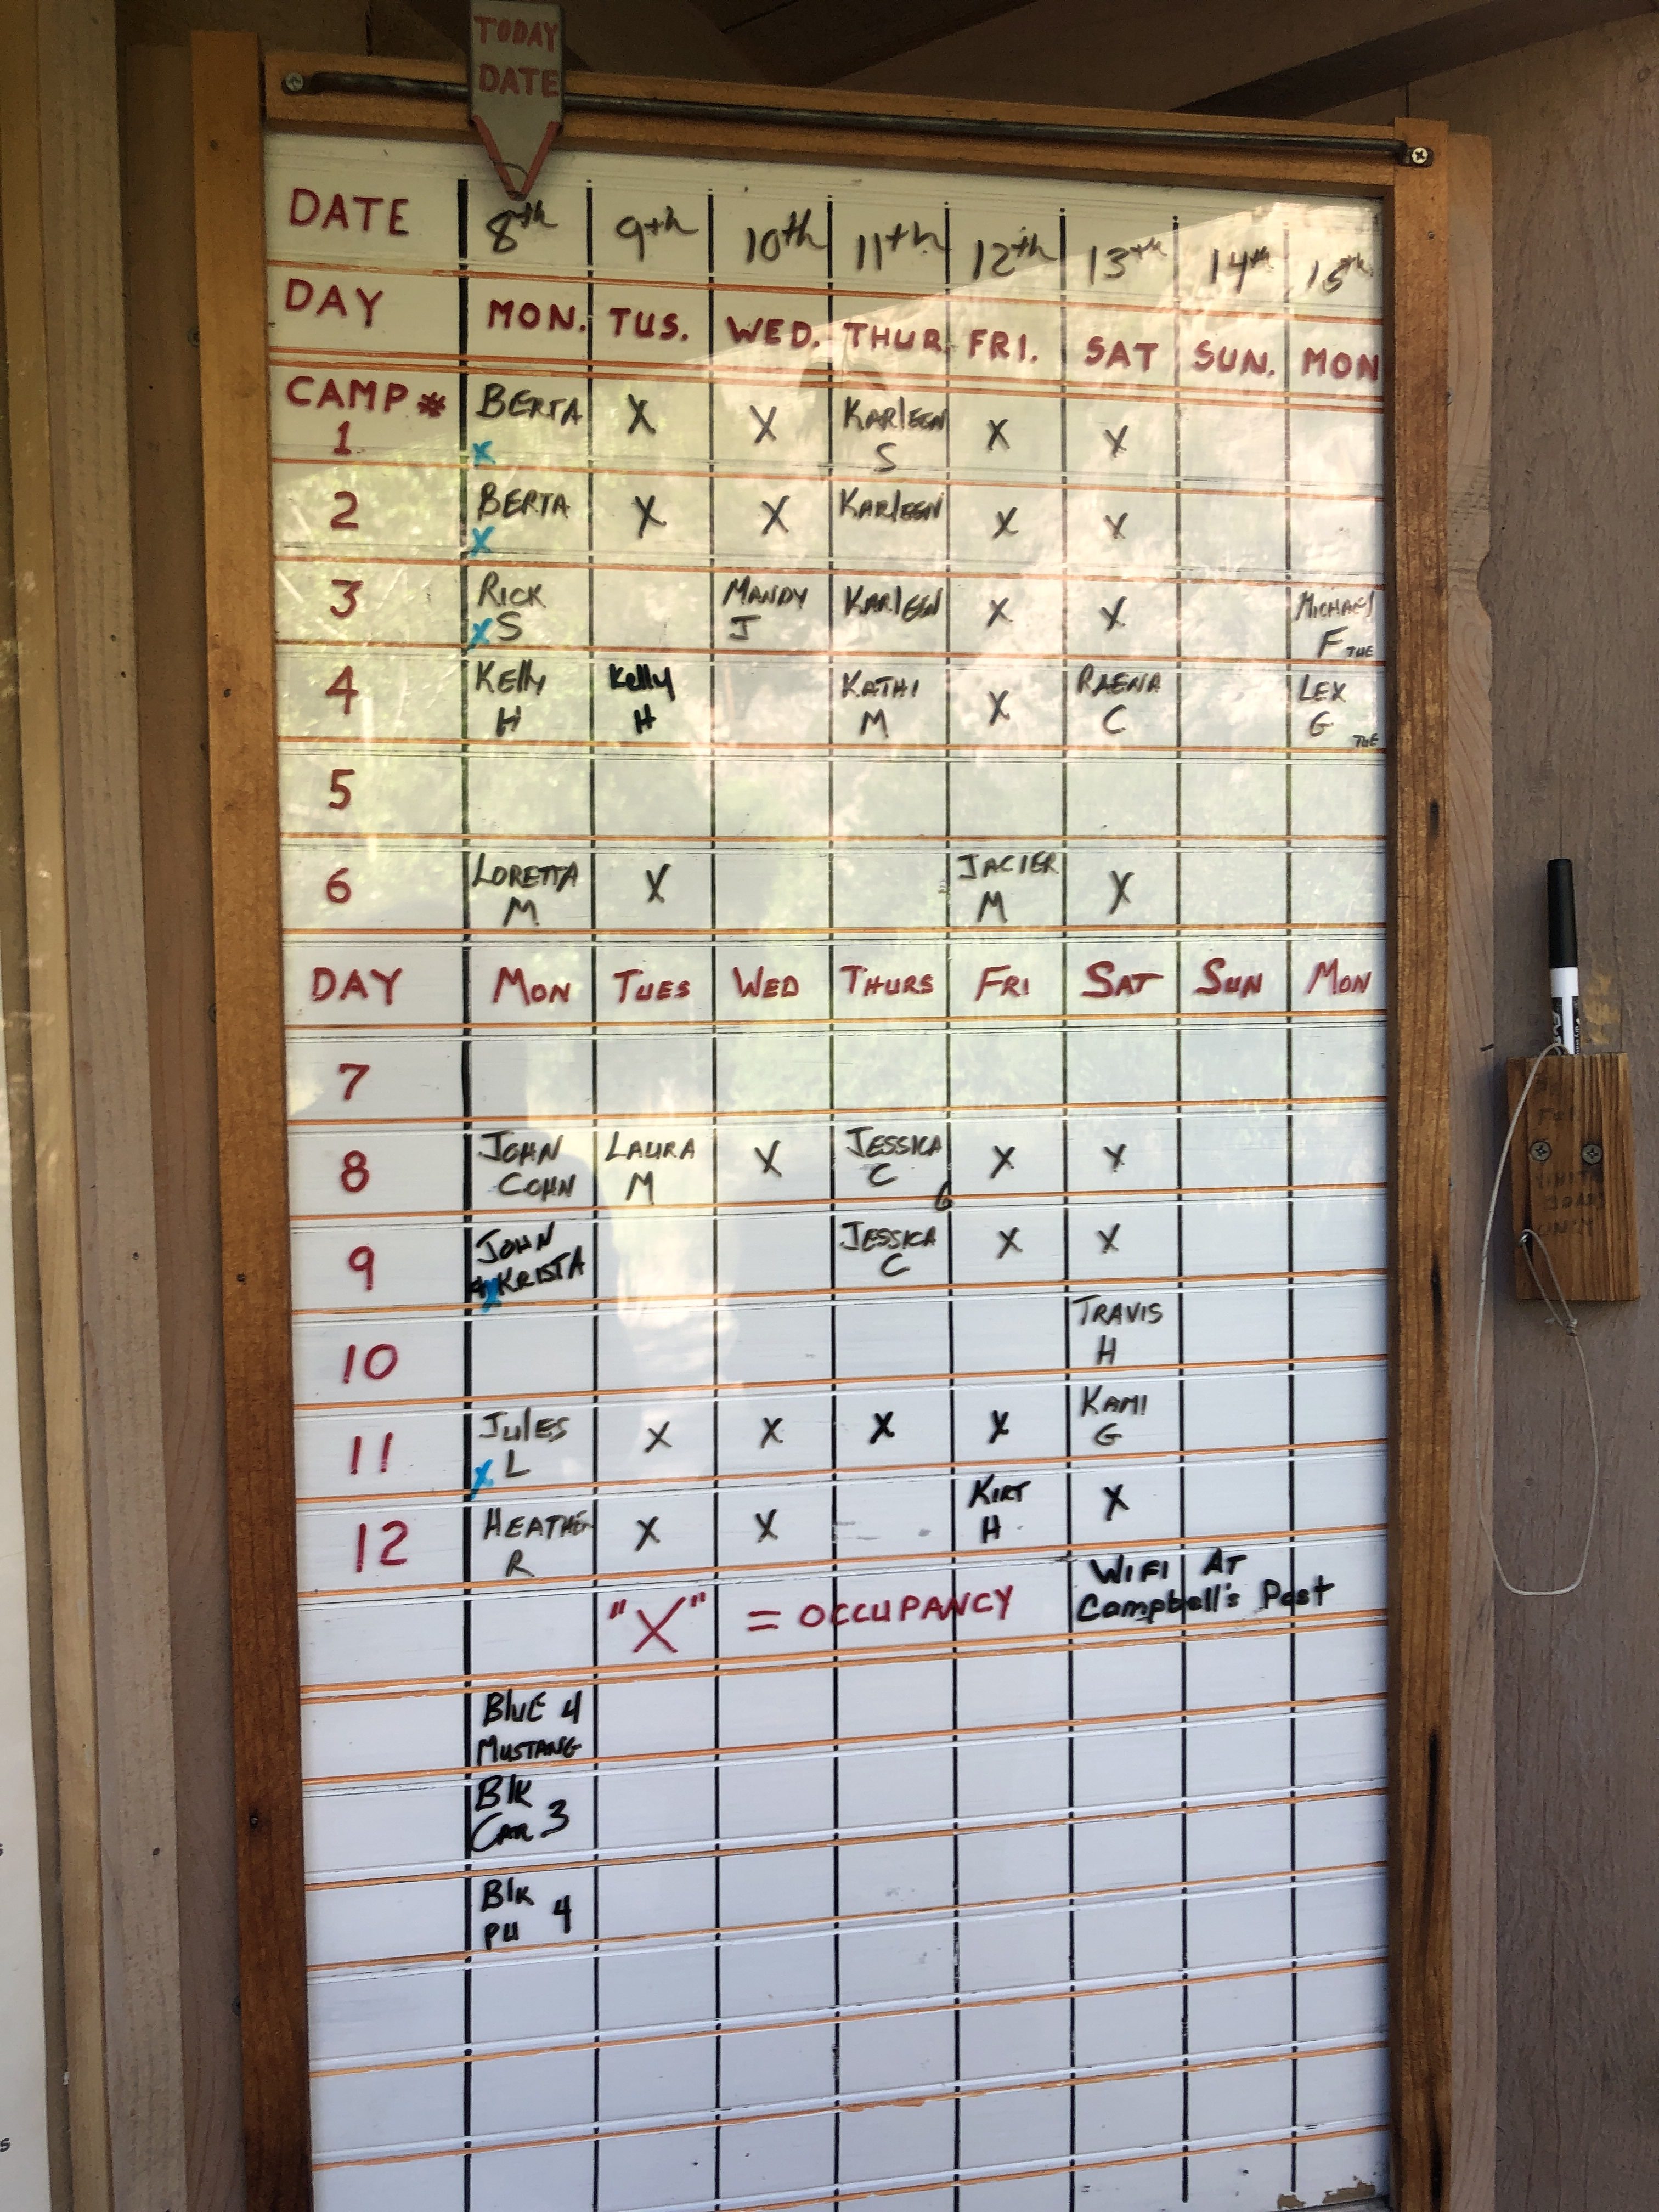 TODAY
DATE
DATE 8th 9th 10th 11th 12th 13th 14th 15th
DAY MON. TUS. WED. THUR. FRI. SAT SUN. MON
CAMP # BERTA X X KARlEEN X X
1 X S
2 BERTA X X KARlEEN X X
X
3 RICK MANDY KARlEEN X X MICHAEl
X S J F TUE
4 KElly Kelly KATHI X RAENA LEX
H H M C G TUE
5
6 LORETTA X JACIER X
M M
DAY MON TUES WED THURS FRI SAT SUN MON
7
8 JOHN LAURA X JESSICA X X
COHN M C
9 JOHN JESSICA X X
X KRISTA C
10 TRAVIS
H
11 JulES X X X X KAMI
X L G
12 HEATHER X X KIRT X
R H
"X" = OCCUPANCY WIFI AT
Campbell's Post
BluE 4
MUSTANG
Blk
CAR 3
Blk 4
PU